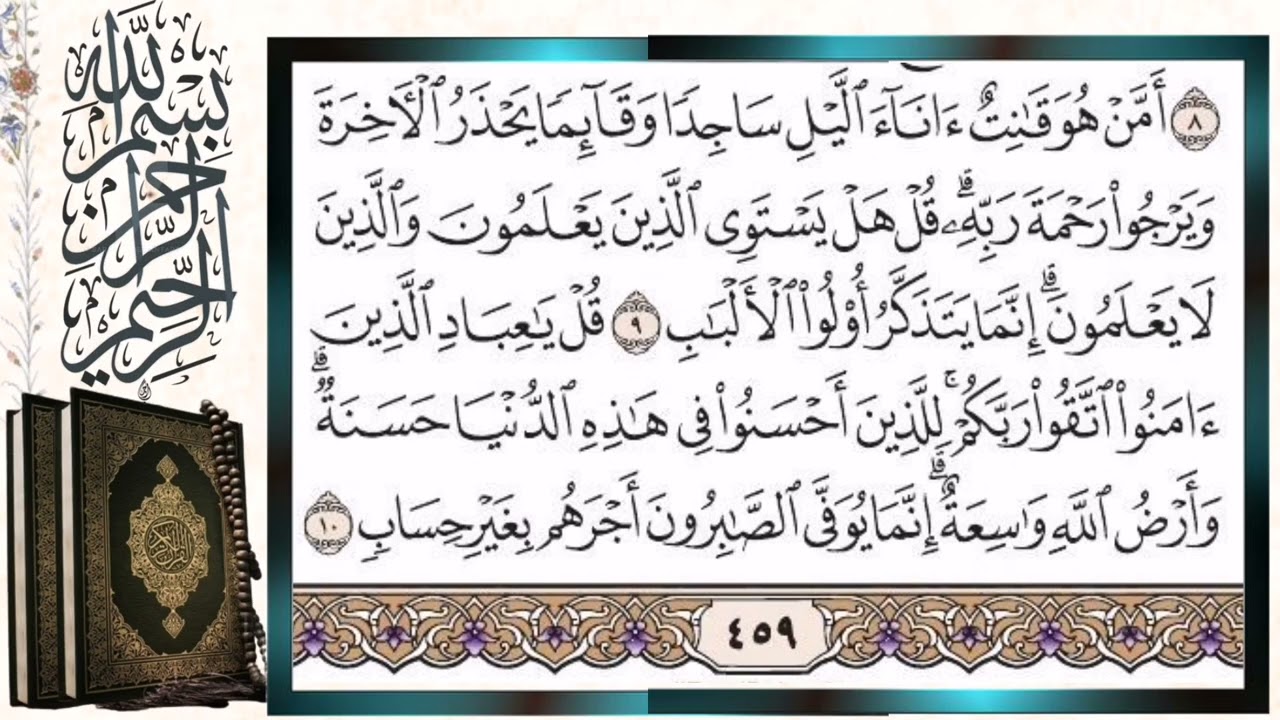 بِسْمِ اللَّهِ
الرَّحْمَٰنِ
الرَّحِيمِ
٨ أَمَّنْ هُوَ قَٰنِتٌ ءَانَآءَ ٱلَّيْلِ سَاجِدًا وَقَآئِمًا يَحْذَرُ ٱلْأَخِرَةَ
وَيَرْجُوا۟ رَحْمَةَ رَبِّهِۦۗ قُلْ هَلْ يَسْتَوِى ٱلَّذِينَ يَعْلَمُونَ وَٱلَّذِينَ
لَا يَعْلَمُونَۗ إِنَّمَا يَتَذَكَّرُ أُو۟لُوا۟ ٱلْأَلْبَٰبِ ٩ قُلْ يَٰعِبَادِ ٱلَّذِينَ
ءَامَنُوا۟ ٱتَّقُوا۟ رَبَّكُمْۚ لِلَّذِينَ أَحْسَنُوا۟ فِى هَٰذِهِ ٱلدُّنْيَا حَسَنَةٌۗ
وَأَرْضُ ٱللَّهِ وَٰسِعَةٌۗ إِنَّمَا يُوَفَّى ٱلصَّٰبِرُونَ أَجْرَهُم بِغَيْرِ حِسَابٍ ١٠
٤٥٩